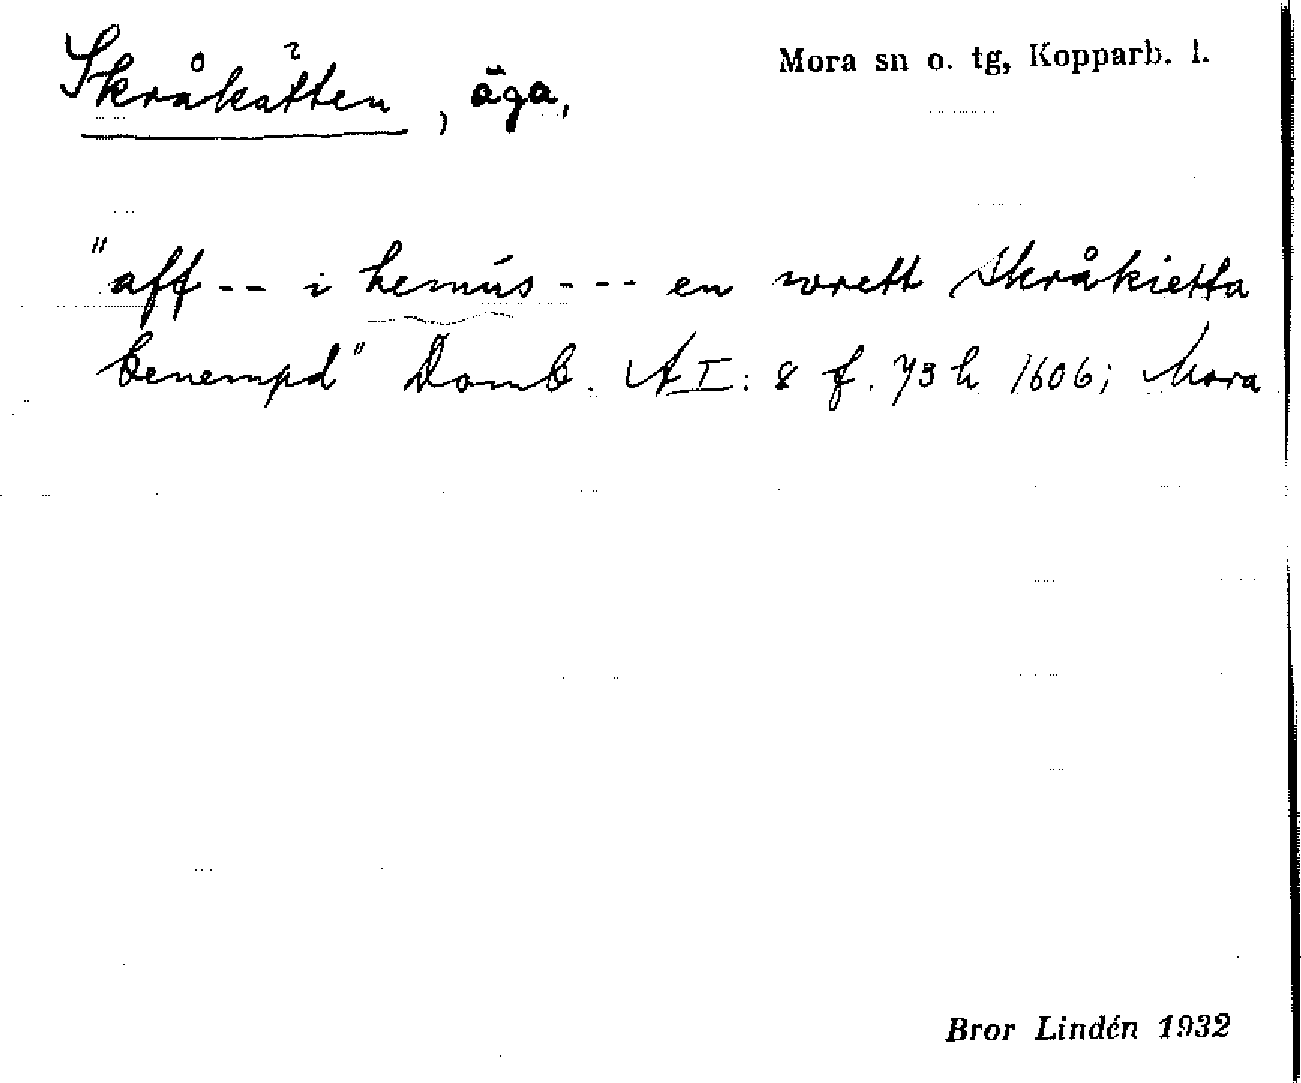 Skråkätten, äga, Mora sn o. tg, Kopparb. l.
"aff -- i hemus --- en wrett Skråkietta
benempd" Domb. A I: 8 f. 73 h 1606; Mora
Bror Lindén 1932